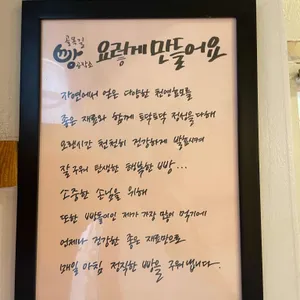 골목길
빵 공작소
요렇게 만들어요
자연에서 얻은 다양한 천연효모를
좋은 재료와 함께 토닥토닥 정성을 다해
오랜시간 천천히 건강하게 발효시켜
잘 구워 탄생한 행복한 빵...
소중한 손님을 위해
또한 빵돌이인 제가 가장 많이 먹기에
언제나 건강한 좋은 재료만으로
매일 아침 정직한 빵을 구워냅니다.